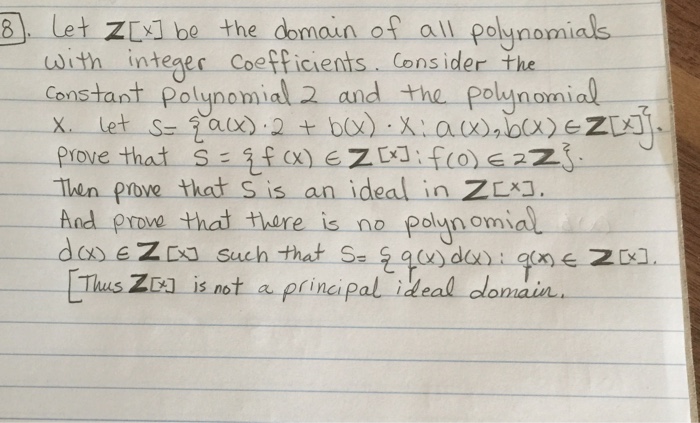 8). Let Z[x] be the domain of all polynomials
with integer coefficients. Consider the
constant polynomial 2 and the polynomial
x. Let S= {a(x)·2 + b(x)·x: a(x), b(x) ∈ Z[x]}.
prove that S = {f(x) ∈ Z[x]: f(0) ∈ 2Z}.
Then prove that S is an ideal in Z[x].
And prove that there is no polynomial
d(x) ∈ Z[x] such that S= { q(x)d(x): q(x) ∈ Z[x].
[Thus Z[x] is not a principal ideal domain.